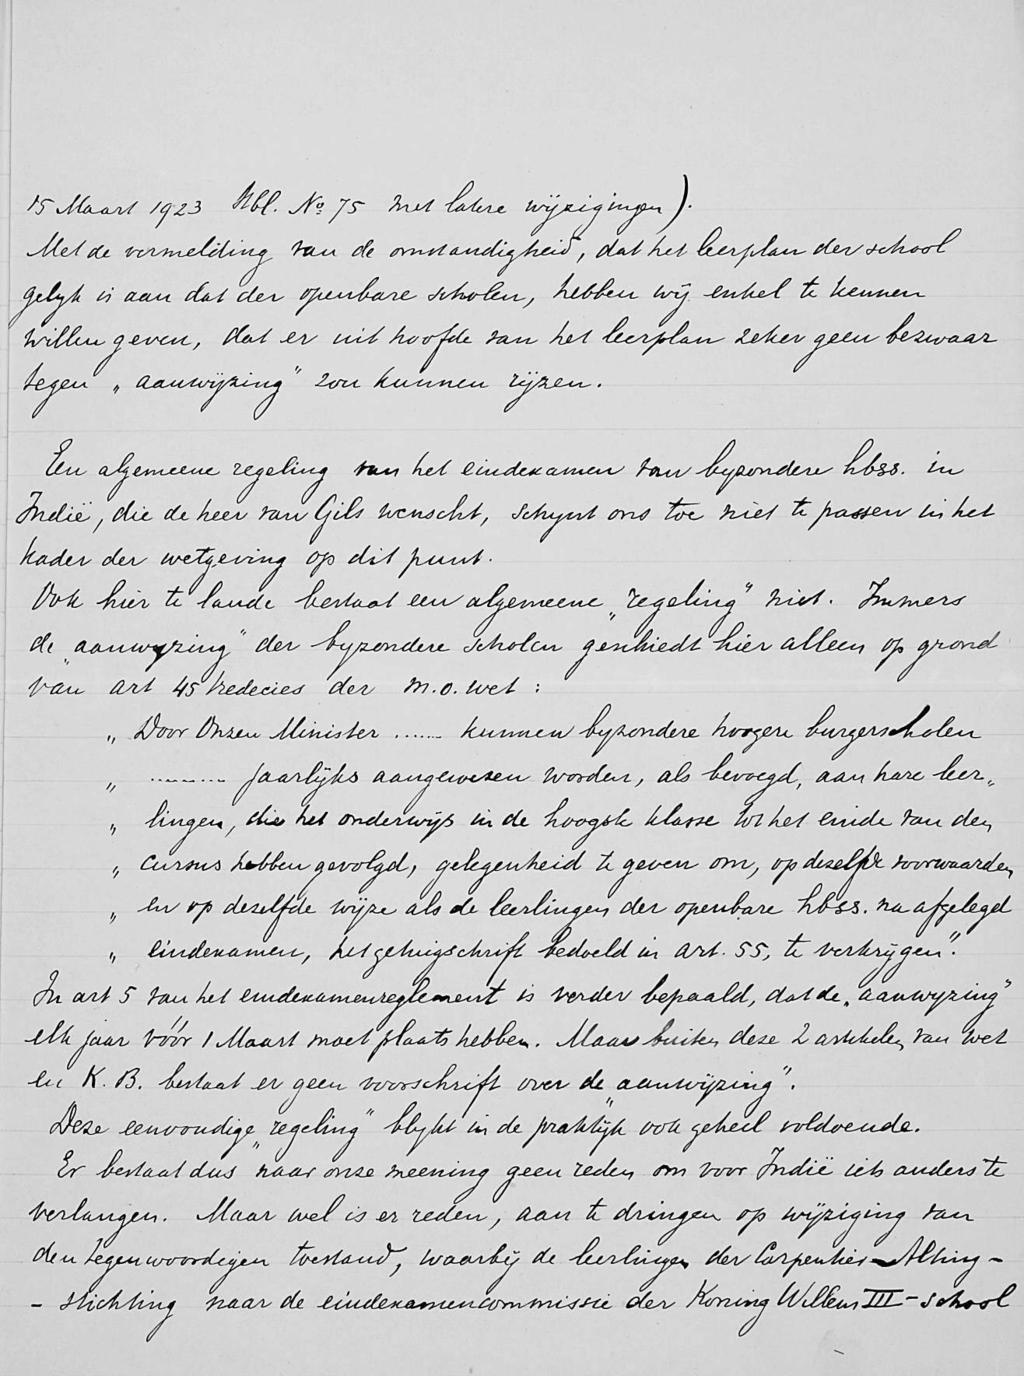 15 Maart 1923 Stbl. No 75 met latere wijzigingen).
Met de vermelding van de omstandigheid, dat het leerplan der school
gelijk is aan dat der openbare scholen, hebben wij enkel te kennen
willen geven, dat er uit hoofde van het leerplan zeker geen bezwaar
tegen „aanwijzing" zou kunnen rijzen.
Een algemeene regeling van het eindexamen van byzondere hbss. in
Indië, die de heer van Gils wenscht, schynt ons toe niet te passen in het
kader der wetgeving op dit punt.
Ook hier te lande bestaat een algemeene „regeling" niet. Immers
de „aanwyzing" der byzondere scholen geschiedt hier alleen op grond
van art 45 tredecies der m.o. wet:
„ Door Onzen Minister ...... kunnen byzondere hoogere burgerscholen
„ ......... jaarlijks aangewezen worden, als bevoegd, aan hare leer„
„ lingen, die het onderwijs in de hoogste klasse tot het einde van den
„ cursus hebben gevolgd, gelegenheid te geven om, op dezelfde voorwaarden
„ en op dezelfde wijze als de leerlingen der openbare hbss. na afgelegd
„ eindexamen, het getuigschrift bedoeld in art. 55, te verkrijgen".
In art 5 van het eindexamenreglement is verder bepaald, dat de „aanwyzing"
elk jaar vóór 1 Maart moet plaats hebben. Maar buiten deze 2 artikelen van wet
en K.B. bestaat er geen voorschrift over de „aanwijzing".
Deze eenvoudige „regeling" blykt in de praktijk ook geheel voldoende.
Er bestaat dus naar onze meening geen reden om voor Indië iets anders te
verlangen. Maar wel is er reden, aan te dringen op wijziging van
den tegenwoordigen toestand, waarbij de leerlingen der Carpentier-Alting-
-stichting naar de eindexamencommissie der Koning Willem III-school